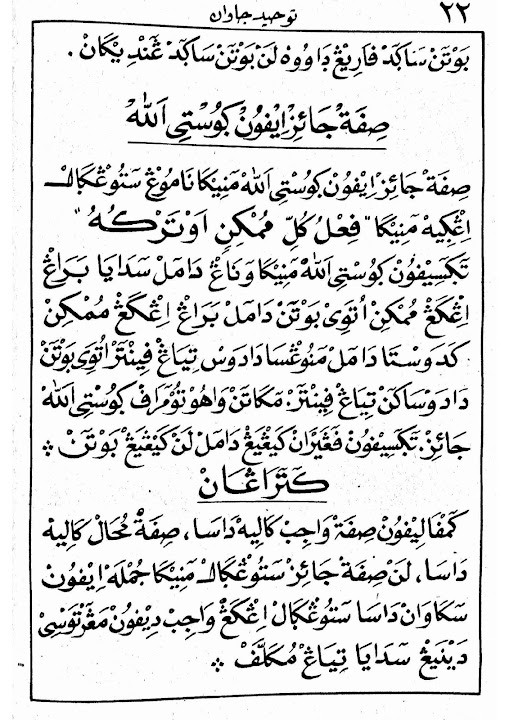 ٢٢
توحيد جاوان
بَوْتَنْ سَاكَدْ فَارِيْڠْ دَاوُوهْ لَنْ بَوْتَنْ سَاكَدْ ڠَنْدِيْكَانْ.
صِفَةْ جَائِزْ اِيْفُوْنْ ڮُوْسْتِي اَللّٰهْ
صِفَةْ جَائِزْ اِيْفُوْنْ ڮُوْسْتِي اَللّٰهْ مَنِيْكَا نَامُوْڠْ سَتُوْڠْڮَالْ
اِڠْڮِيْهْ مَنِيْكَا "فِعْلُ كُلِّ مُمْكِنٍ اَوْ تَرْكُهُ"
تَڮَسِيْفُوْنْ ڮُوْسْتِي اَللّٰهْ مَنِيْكَا وَنَاڠْ دَامَلْ سَدَايَا بَرَاڠْ
اِڠْكَڠْ مُمْكِنْ اُتَوِى بَوْتَنْ دَامَلْ بَرَاڠْ اِڠْكَڠْ مُمْكِنْ
كَدَوْسْتَا دَامَلْ مَنُوْڠْسَا دَادَوْسْ تِيَاڠْ فِيْنْتَرْ اُتَوِى بَوْتَنْ
دَادَوْسَاكَنْ تِيَاڠْ فِيْنْتَرْ. مَكَاتَنْ وَاهُوْ تُوْمْرَافْ ڮُوْسْتِي اَللّٰهْ
جَائِزْ. تَڮَسِيْفُوْنْ فَڠَيْرَانْ كَيْڠِيْڠْ دَامَلْ لَنْ كَيْڠِيْڠْ بَوْتَنْ ❖
كَتَرَاڠَانْ
كَمْفَالِيْفُوْنْ صِفَةْ وَاجِبْ كَالِيْهْ دَاسَا، صِفَةْ مُحَالْ كَالِيْهْ
دَاسَا، لَنْ صِفَةْ جَائِزْ سَتُوْڠْڮَالْ مَنِيْكَا جُمْلَهْ اِيْفُوْنْ
سَكَاوَانْ دَاسَا سَتُوْڠْڮَالْ اِڠْكَڠْ وَاجِبْ دِيْفُوْنْ مَڠَرْتَوْسِي
دَيْنِيْڠْ سَدَايَا تِيَاڠْ مُكَلَّفْ ❖